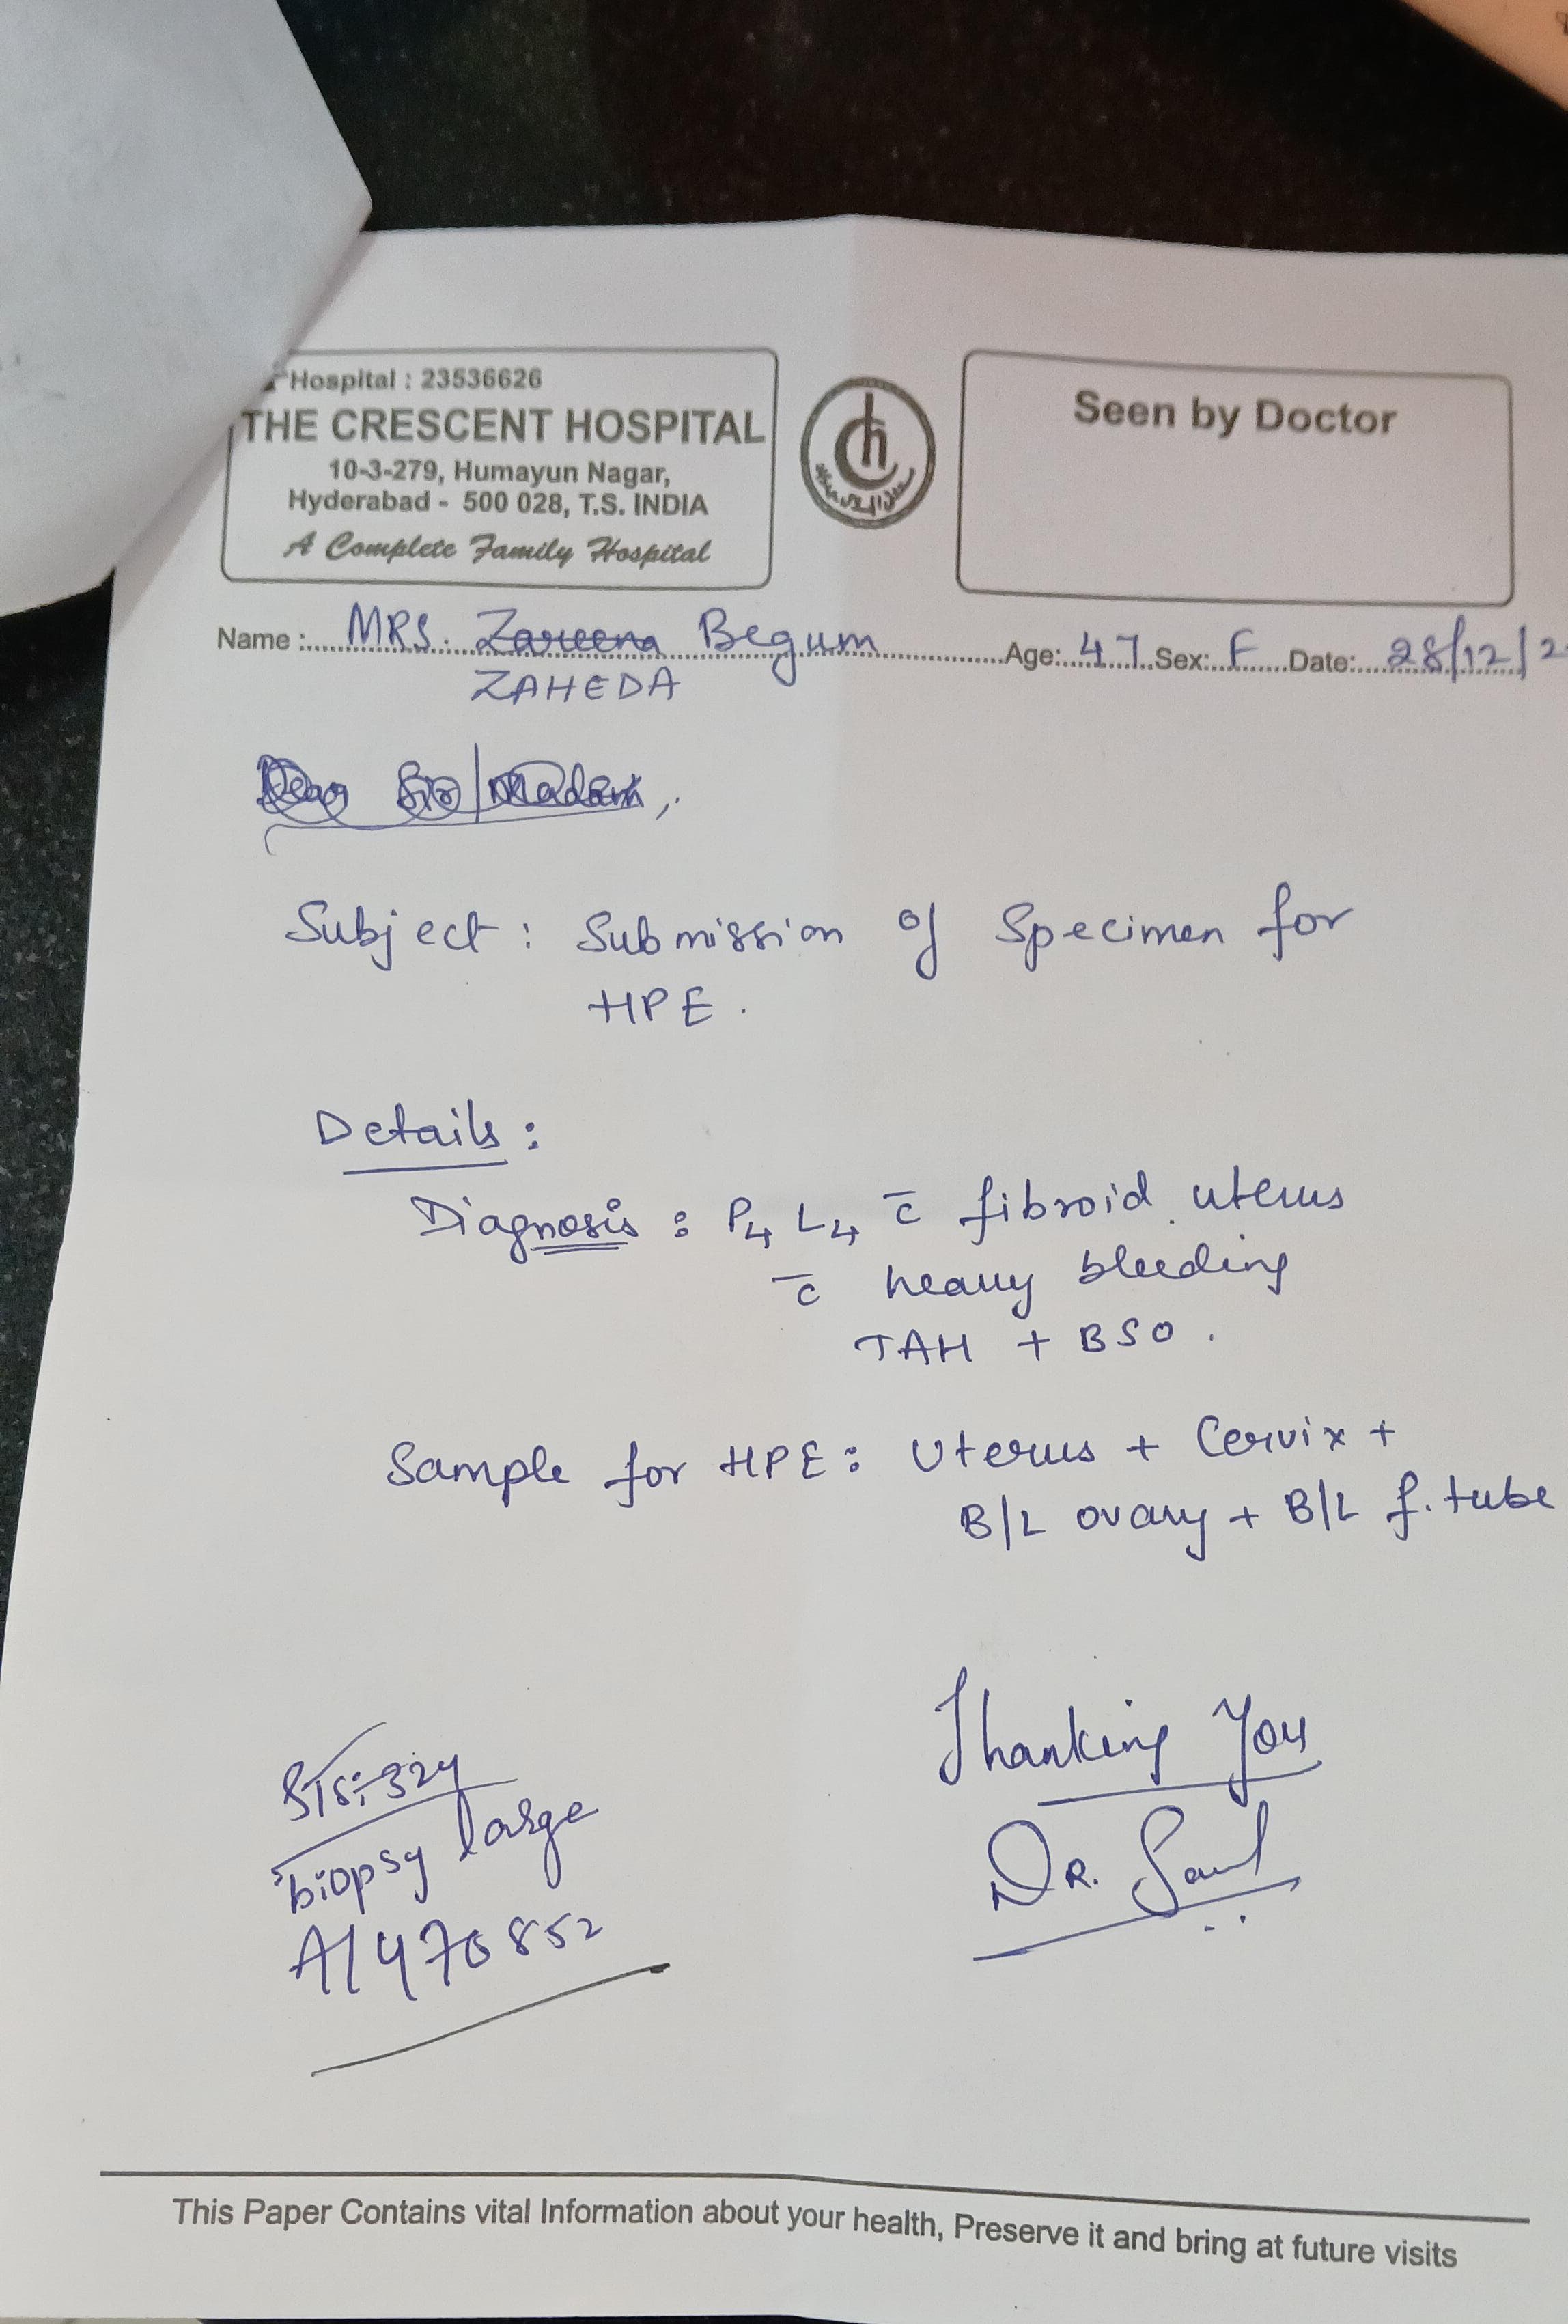 Hospital : 23536626
THE CRESCENT HOSPITAL
10-3-279, Humayun Nagar,
Hyderabad - 500 028, T.S. INDIA
A Complete Family Hospital
Seen by Doctor
Name : MRS. Zareena Begum Age: 47 Sex: F Date: 28/12/2
ZAHEDA
Dear Sir/Madam,
Subject : Submission of Specimen for
HPE.
Details :
Diagnosis : P4 L4 c̄ fibroid uterus
c̄ heavy bleeding
TAH + BSO.
Sample for HPE : Uterus + Cervix +
B/L ovary + B/L f. tube
Thanking You
DR.
324
biopsy large
A1470852
This Paper Contains vital Information about your health, Preserve it and bring at future visits